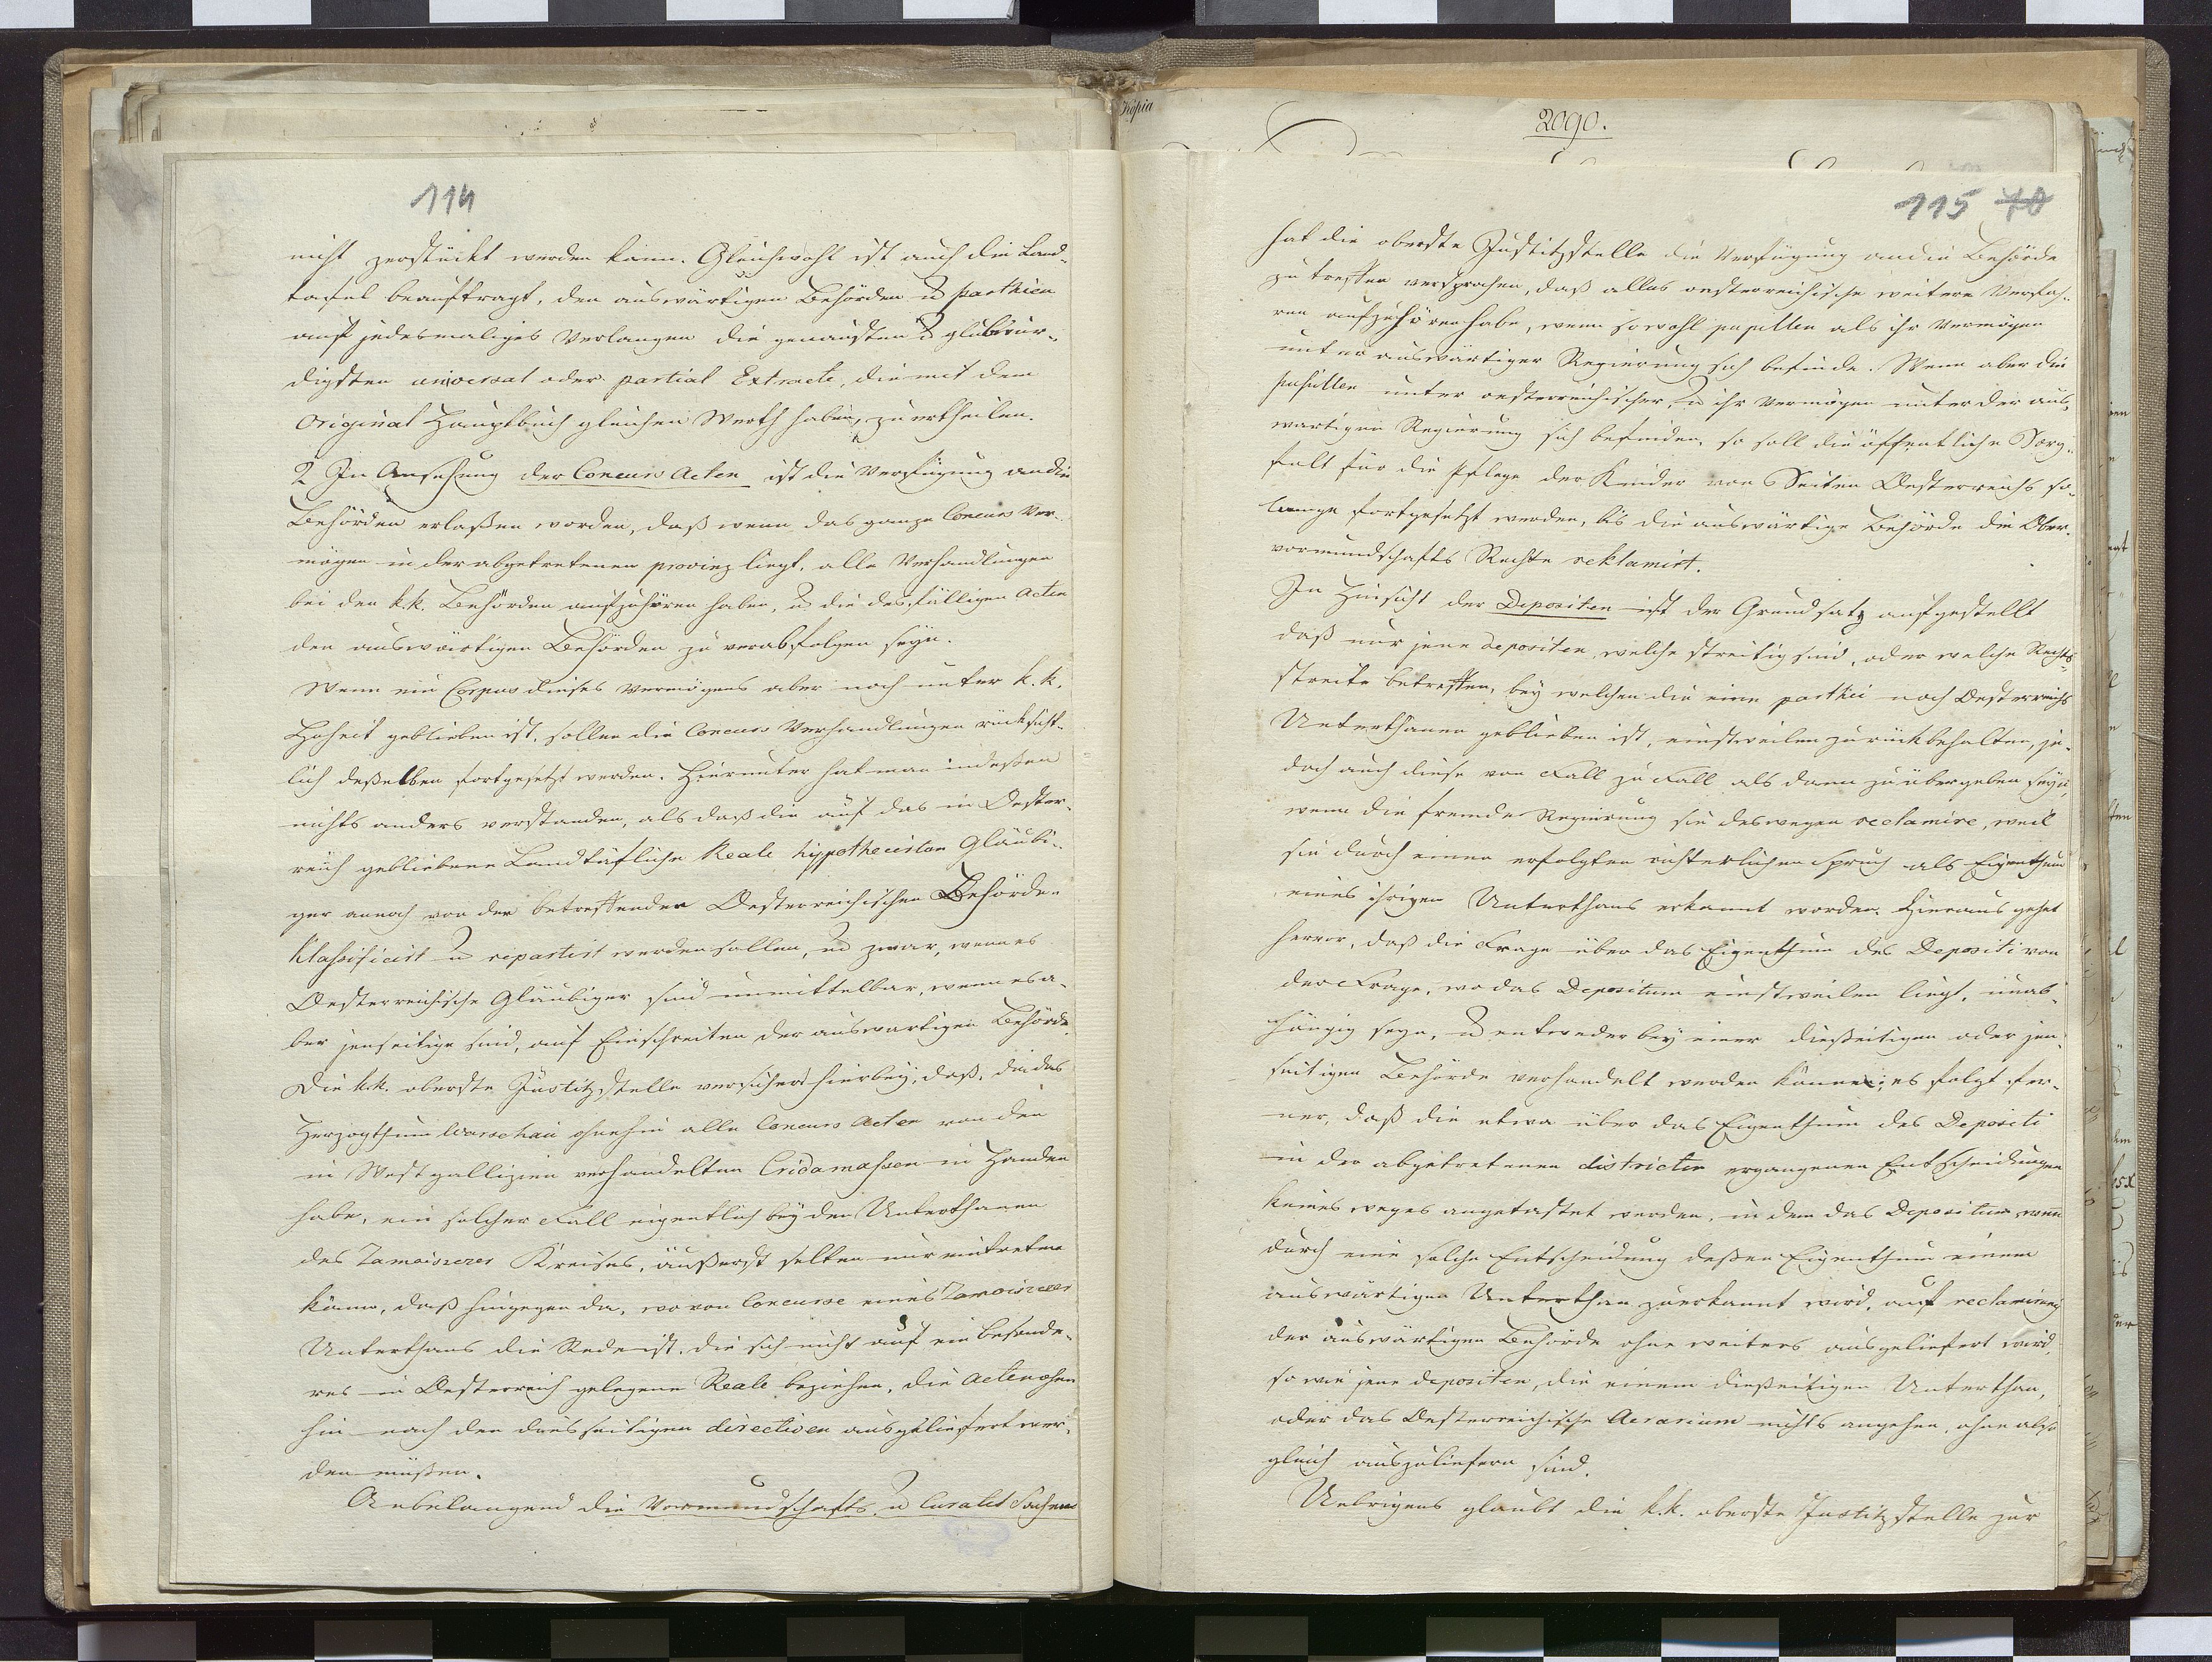 114
nicht zerstückt werden kann. Gleichwohl ist auch die Land¬
tafel beauftragt, den auswärtigen Behörden u parthien
auf jedesmaliges Verlangen die genausten u glubwür¬
digsten universal oder partial Extracte, die mit dem
Original Hauptbuch gleichen Werth haben, zu ertheilen.
2 In Ansehung der Concurs Acten ist die Verfügung an die
Behörden erlaßen worden, daß wenn das ganze Concurs Ver¬
mögen in der abgetretenen provinz liegt, alle Verhandlungen
bei den k.k. Behörden aufzuhören haben, u die desfälligen Acten
den auswärtigen Behörden zu verabfolgen seyn.
Wenn ein Corpus dieses Vermögens aber noch unter k.k.
Hoheit geblieben ist, sollen die Concurs Verhandlungen rücksicht¬
lich deßelben fortgesetzt werden. Hierunter hat man indeßen
nichts anders verstanden, als daß die auf das in Oester¬
reich gebliebene Landtäfliche Reale hippothecirten Gläubi¬
ger annoch von der betreffenden Oesterreichischen Behörde
klassificirt u repartirt werden sollen, u zwar, wenn es
Oesterreichische Gläubiger sind unmittelbar, wenn es a¬
ber jenseitige sind, auf Einschreiten der auswärtigen Behörde.
Die k.k. oberste Justitzstelle versichert hierbey, daß, da das
Herzogthum Warschau ohnehin alle Concurs Acten von den
in Westgallizien verhandelten Cridamassen in Handen
habe, ein solcher Fall eigentlich bey den Unterthanen
des Zamoiscer Kreises, äußerst selten nur eintreten
könne, daß hingegen da, wo von Concurse eines Zamoiscer
Unterthans die Rede ist, die sich nicht auf ein besonde¬
res in Oesterreich gelegene Reale beziehen, die Acten ohne
hin nach den diesseitigen directiven ausgeliefert wer¬
den müßen.
Anbelangend die Vormundschafts u Curatel Sachen
Kopia
2090.
115 70
hat die oberste Justitzstelle die Verfügung an die Behörde
zu treffen versprochen, daß alles oesterreichische weitere Verfah¬
ren aufzuhören habe, wenn sowohl pupillen als ihr Vermögen
unter auswärtiger Regierung sich befinde. Wenn aber die
pupillen unter oesterreichischer, u ihr Vermögen unter der aus¬
wärtigen Regierung sich befinden, so soll die öffentliche Sorg¬
falt für die Pflege der Kinder von Seiten Oesterreichs so¬
lange fortgesetzt werden, bis die auswärtige Behörde die Ober¬
vormundschafts Rechte reklamirt.
In Hinsicht der Depositen ist der Grundsatz aufgestellt
daß nur jene depositen, welche streitig sind, oder welche Rechts¬
streite betreffen, bey welchen die eine parthei noch Oesterreichs
Unterthanen geblieben ist, einstweilen zurückbehalten, je¬
doch auch diese von Fall zu Fall als dann zu übergeben seyn,
wenn die fremde Regierung sie deswegen reclamire, weil
sie durch einen erfolgten richterlichen Spruch als Eigenthum
eines ihrigen Unterthans erkannt worden. Hieraus gehet
hervor, daß die Frage über das Eigenthum des Depositi von
der Frage, wo das Depositum einstweilen liegt, unab¬
hängig seyn, u entweder bey einer dießeitigen oder jen¬
seitigen Behörde verhandelt werden könne; es folgt fer¬
ner, daß die etwa über das Eigenthum des Depositi
in der abgetretenen districten ergangenen Entscheidungen
keines weges angetastet werden, in dem das Depositum, wenn
durch eine solche Entscheidung deßen Eigenthum einem
auswärtigen Unterthan zuerkannt wird, auf reclamirung
der auswärtigen Behörde ohne weiters ausgeliefert wird,
so wie jene depositen, die einem dießeitigen Unterthan,
oder das Oesterreichische Aerarium nichts angehen, ohne also
gleich auszuliefern sind.
Uebrigens glaubt die k.k. oberste Justitzstelle zur